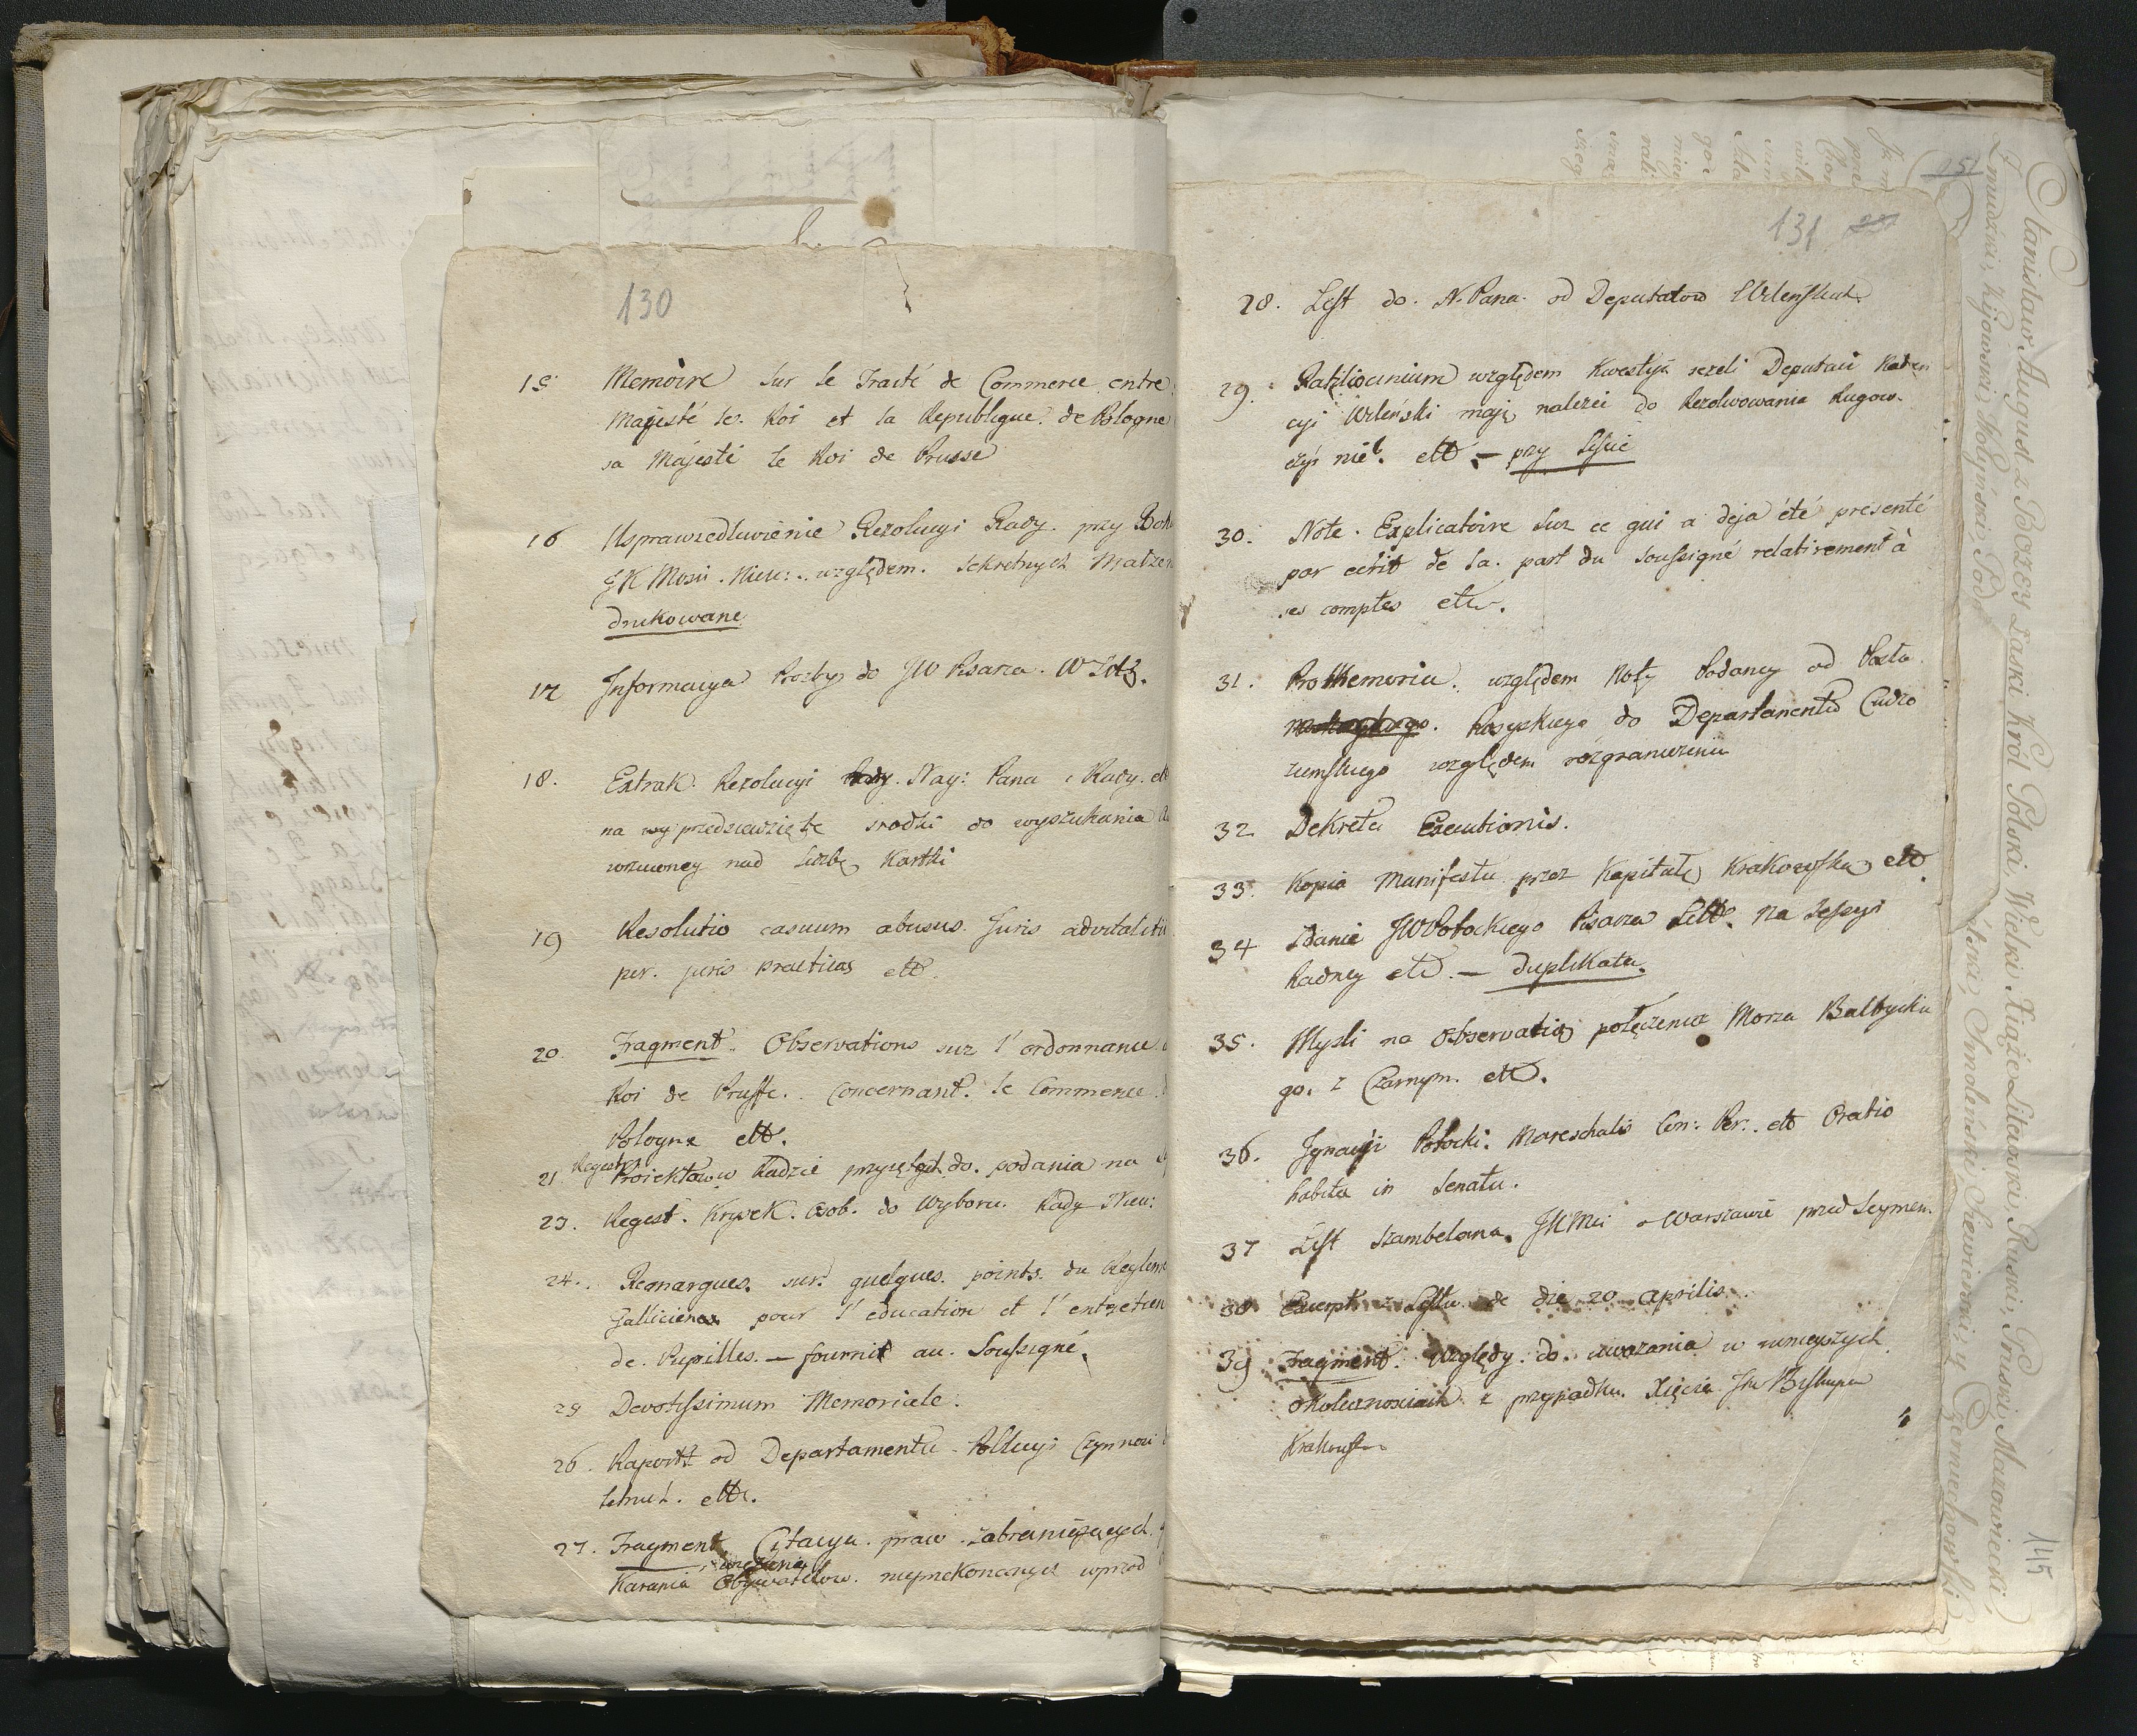 130
15. Memoire sur le Traité de Commerce entre
Majesté le Roi et la Republique de Pologne
sa Majesté le Roi de Prusse
16 Usprawiedliwienie Rezolucyi Rady przy Bok
JK Mosci Nieu: względem sekretnych
drukowane
17 Informacya Prozby do JW Pisarza W Litt.
18. Extrak. Rezolucyi Nay: Pana i Rady. ett
na przedziewzięte srodki do wyszukania
wrzuconey nad liczbę Kartki
19 Resolutio casuum abusus Juris advitalitii
per juris practicas ett.
20. Fragment. Observations sur l'ordonnance
Roi de Prusse. Concernant. le Commerce
Pologne ett.
21. Regestr Proiektow w Radzie przyiętych do podania na
23. Regest. Krysek. Osob. do Wyboru Rady Nieu:
24. Remarques sur quelques points du Reglem
Galliciene pour l'education et l'entretien
de Pupilles. — fournit au Soussigné
25 Devotissimum Memoriale.
26. Raportt od Departamentu Pollicyi Czynnosci
ett.
27. Fragment Citacya praw zabraniaiących
Karania Obywatelow nieprzekonanych wprzod
151
131
28. List do N. Pana od Deputatow Wilenskich
29. Ratiocinium względem Kwestyi iezeli Deputaci Kaden
cyi Wileński maią nalezei do Rezolwowania Rugow
czyi nie? ett — przy Liscie
30. Note Explicatoire sur ce qui a deja été presenté
par ecrit de la part du soussigné relativement à
ses comptes ett.
31. Promemoria względem Noty Podaney od Posła
Rosyiskiego do Departamentu Cudzo
ziemskiego względem rozgraniczenia
32. Dekreta Executionis.
33. Kopia Manifestu przez Kapitułę Krakowską ett
34 Zdanie JW Potockiego Pisarza Litt. na Sessyi
Radney ett. — duplikata.
35. Mysli na Observatią połączenia Morza Baltycku
go. z Czarnym. ett.
36. Ignacyi Potocki. Mareschalis Con: Per: ett Oratio
habita in Senatu.
37 List Szambelana JKMci o Warszawie przed Seymem
38 Excerpt z Listu de die 20 Aprilis.
39 Fragment. Względy do uwazania w
okolicznosciach z przypadku Xięcia Jm Biskupa
Krakowsk
145
Stanisław August z Bozey Łaski Krol Polski, Wielki Xiąże Litewski, Ruski, Pruski, Mazowiecki,
Zmudzki, Kijowski, Wołyński, Pod
Smoleński, Siewierski, y Czerniechowski